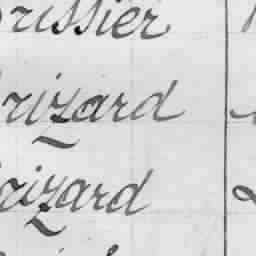 rissier
rizard
rizard